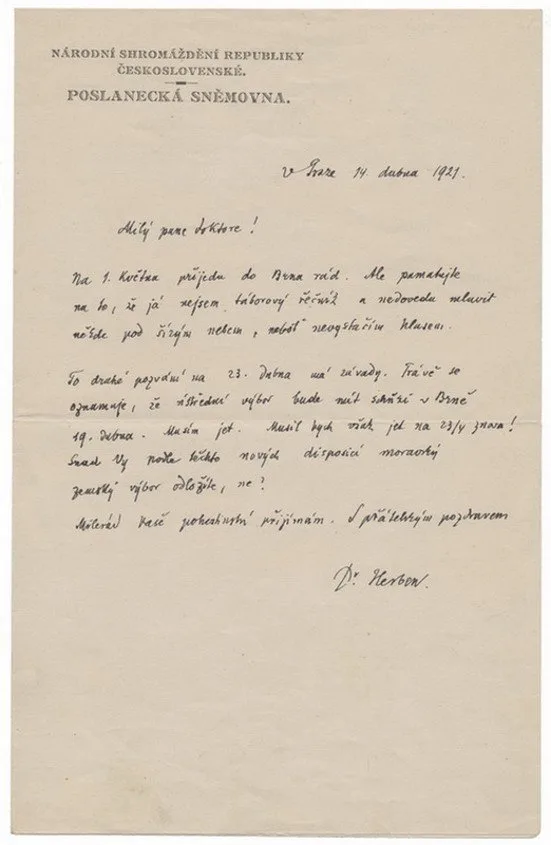 NÁRODNÍ SHROMÁŽDĚNÍ REPUBLIKY
ČESKOSLOVENSKÉ.
POSLANECKÁ SNĚMOVNA.
v Praze 14 dubna 1921.
Milý pane doktore!
Na 1. května přijedu do Brna rád. Ale pamatujte
na to, že já nejsem táborový řečník a nedovedu mluvit
někde pod širým nebem, neboť nevystačím hlasem.
To druhé pozvání na 23. dubna má závady. Právě se
oznamuje, že ústřední výbor bude mít schůzi v Brně
19. dubna. Musím jet. Musil bych však jet na 23/4 znova!
Snad Vy podle těchto nových disposicí moravský
zemský výbor odložíte, ne?
Milerád Vaše pohostinství přijímám. S přátelským pozdravem
Dr Herben.